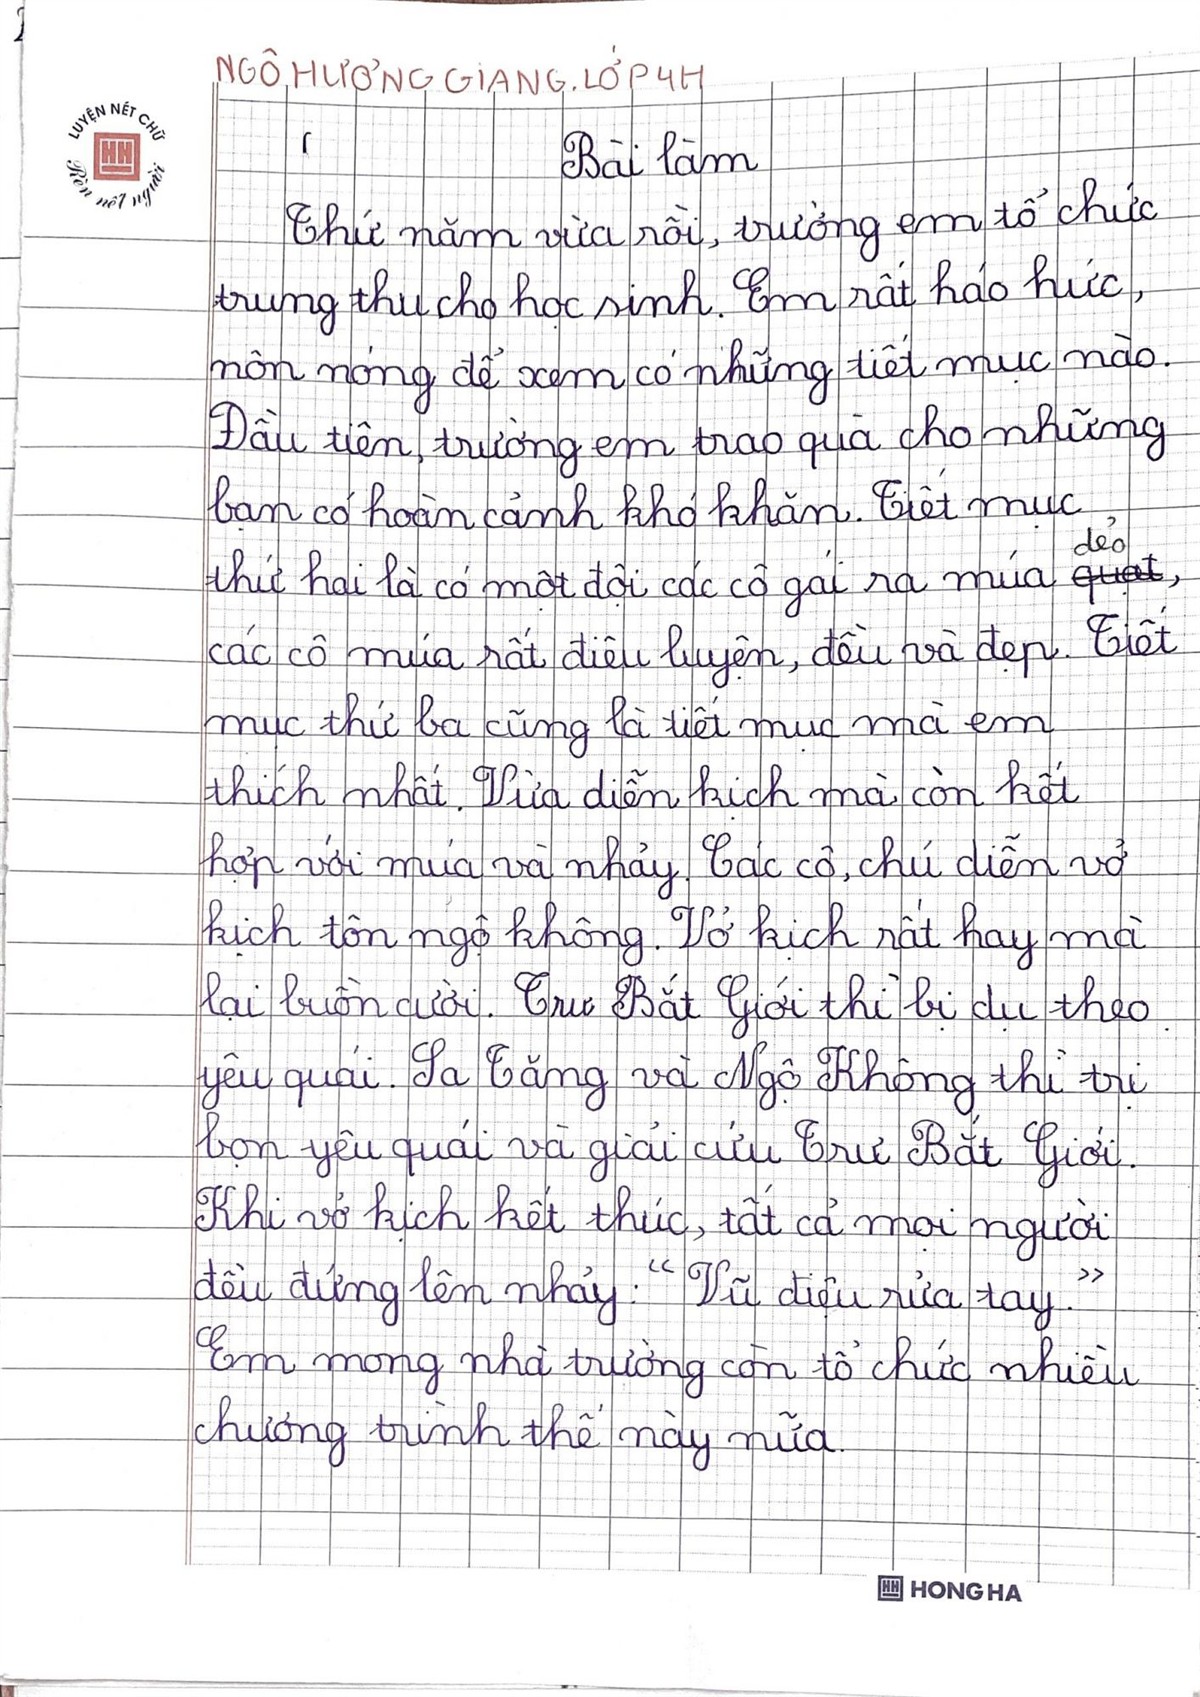 NGÔ HƯƠNG GIANG. LỚP 4H
LUYỆN NÉT CHỮ
Rèn nết người
Bài làm
Thứ năm vừa rồi, trường em tổ chức
trung thu cho học sinh. Em rất háo hức,
nôn nóng để xem có những tiết mục nào.
Đầu tiên, trường em trao quà cho những
bạn có hoàn cảnh khó khăn. Tiết mục
dẻo
thứ hai là có một đội các cô gái ra múa quạt,
các cô múa rất điêu luyện, đều và đẹp. Tiết
mục thứ ba cũng là tiết mục mà em
thích nhất. Vừa diễn kịch mà còn kết
hợp với múa và nhảy. Các cô, chú diễn vở
kịch tôn ngộ không. Vở kịch rất hay mà
lại buồn cười. Trư Bát Giới thì bị dụ theo
yêu quái. Sa Tăng và Ngộ Không thì trị
bọn yêu quái và giải cứu Trư Bát Giới.
Khi vở kịch kết thúc, tất cả mọi người
đều đứng lên nhảy: "Vũ điệu rửa tay."
Em mong nhà trường còn tổ chức nhiều
chương trình thế này nữa.
HONG HA